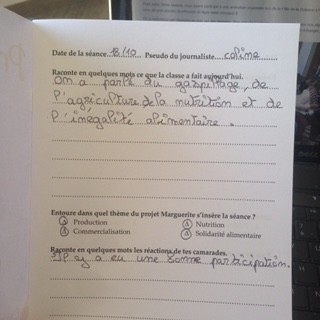 Date de la séance 18/10 Pseudo du journaliste coline
Raconte en quelques mots ce que la classe a fait aujourd'hui.
On a parlé du gaspillage, de
l'agriculture de la nutrition et de
l'inégalité alimentaire.
Entoure dans quel thème du projet Marguerite s'insère la séance ?
Production Nutrition
Commercialisation Solidarité alimentaire
Raconte en quelques mots les réactions de tes camarades.
Il y a eu une bonne participation.